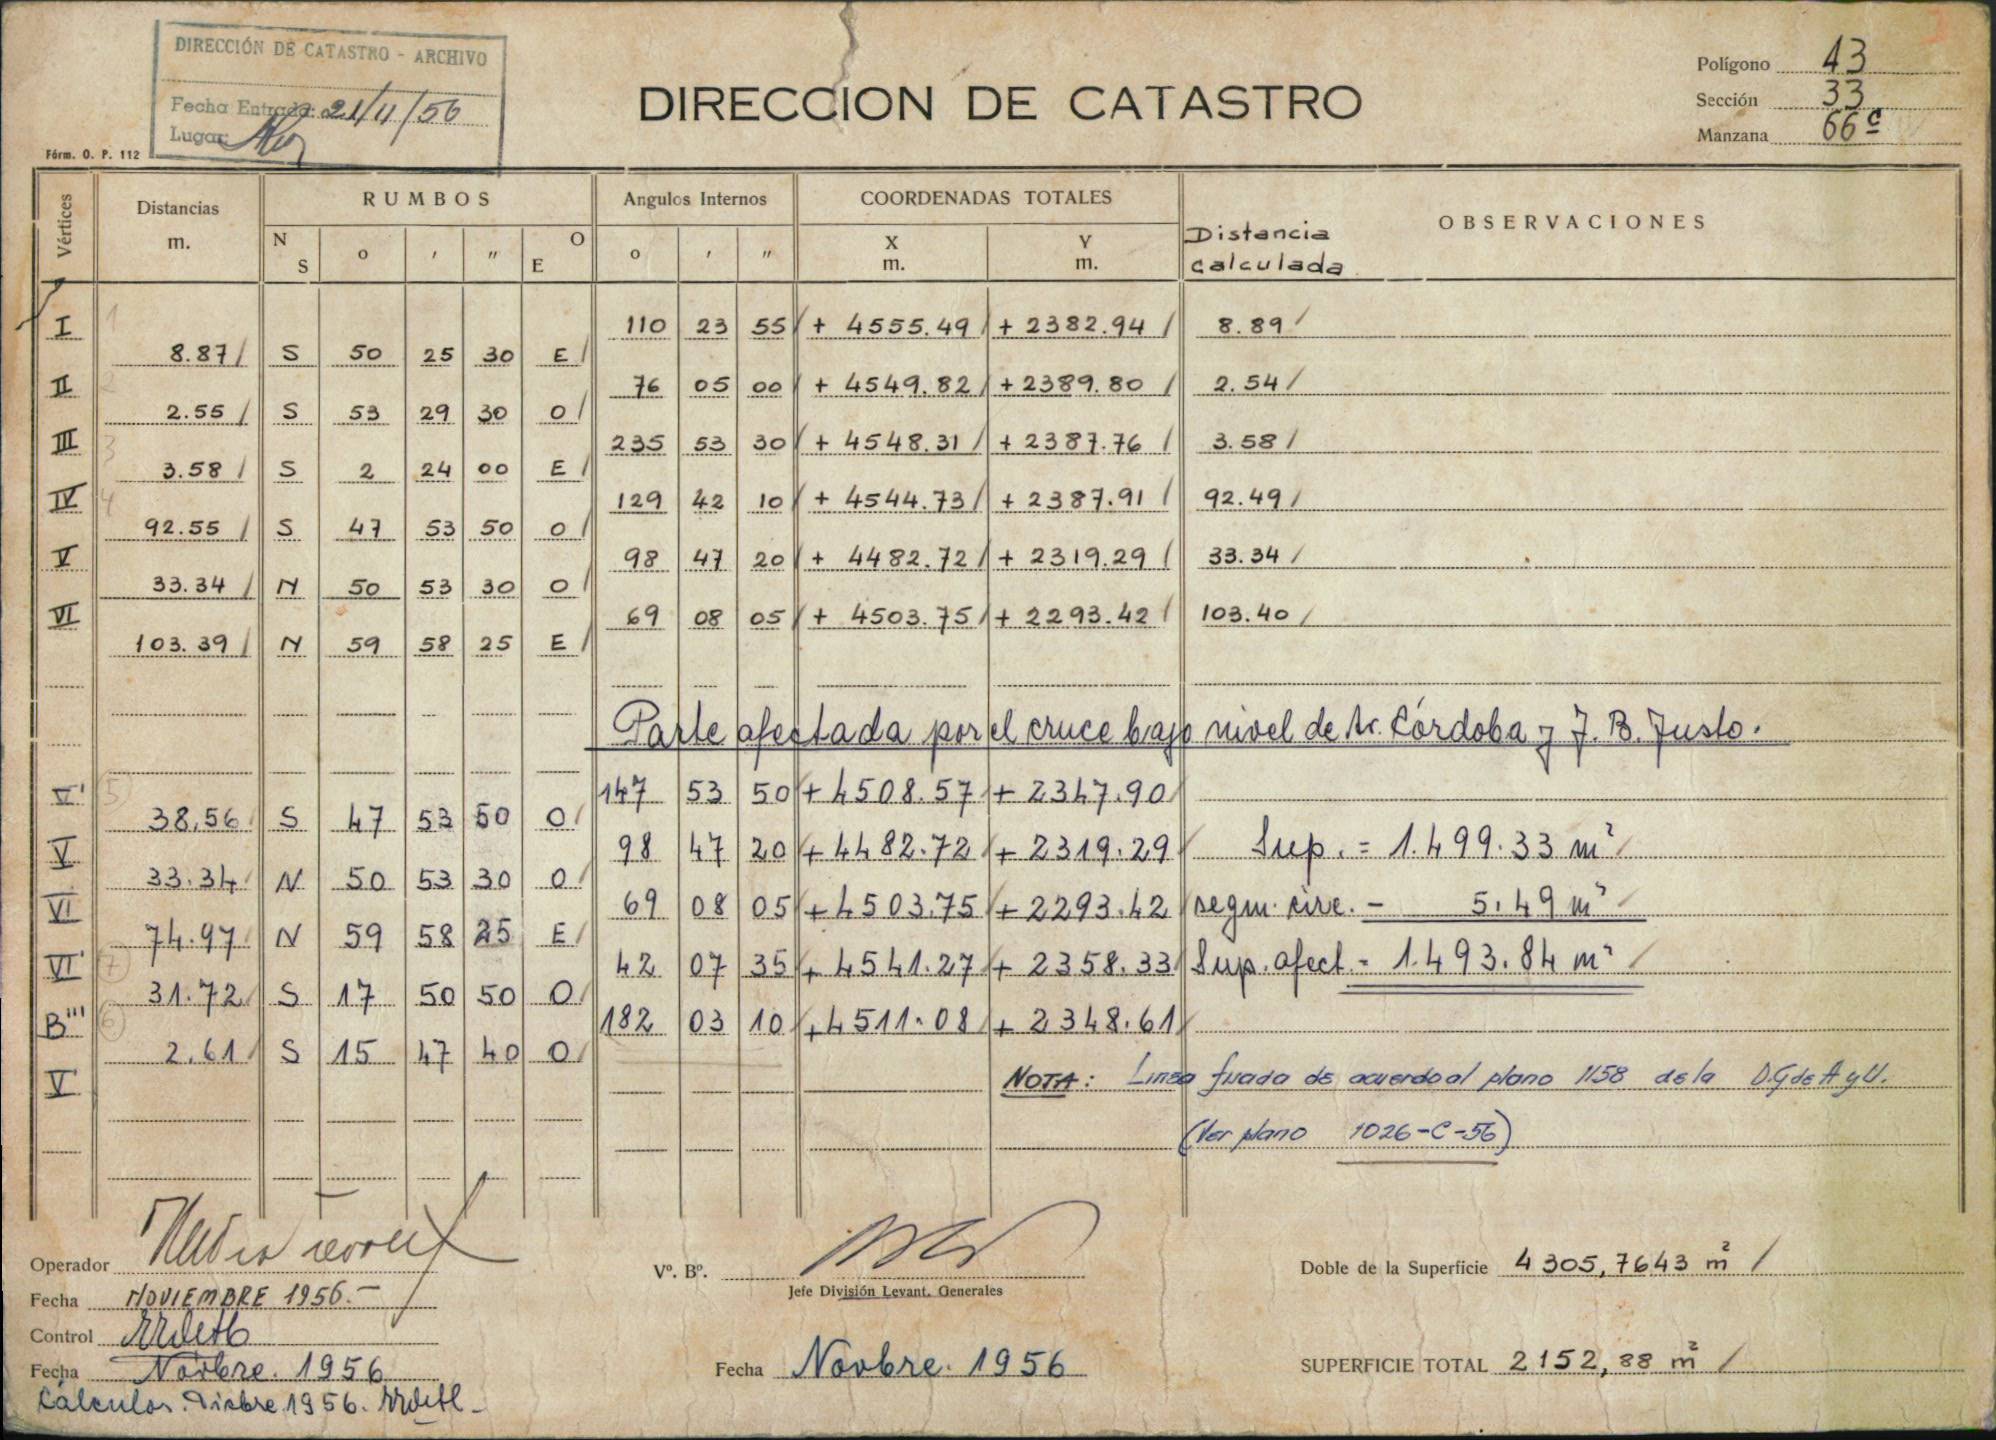 DIRECCIÓN DE CATASTRO - ARCHIVO
Fecha Entrada: 21/11/56
Lugar:
Fórm. O. P. 112
DIRECCION DE CATASTRO
Polígono 43
Sección 33
Manzana 66c
Vértices Distancias m. RUMBOS Angulos Internos COORDENADAS TOTALES Distancia calculada OBSERVACIONES
N S o ' " O E o ' " X m. Y m.
I 110 23 55 + 4555.49 + 2382.94 8.89
8.87 S 50 25 30 E
II 76 05 00 + 4549.82 + 2389.80 2.54
2.55 S 53 29 30 O
III 235 53 30 + 4548.31 + 2387.76 3.58
3.58 S 2 24 00 E
IV 129 42 10 + 4544.73 + 2387.91 92.49
92.55 S 47 53 50 O
V 98 47 20 + 4482.72 + 2319.29 33.34
33.34 N 50 53 30 O
VI 69 08 05 + 4503.75 + 2293.42 103.40
103.39 N 59 58 25 E
Parte afectada por el cruce bajo nivel de Av. Córdoba y J. B. Justo.
V' 147 53 50 + 4508.57 + 2347.90
38,56 S 47 53 50 O
V 98 47 20 + 4482.72 + 2319.29 Sup. = 1.499.33 m²
33.34 N 50 53 30 O
VI 69 08 05 + 4503.75 + 2293.42 segm. circ. - 5.49 m²
74.97 N 59 58 25 E
VI' 42 07 35 + 4541.27 + 2358.33 Sup. afect. = 1.493.84 m²
31.72 S 17 50 50 O
B''' 182 03 10 + 4511.08 + 2348.61
2.61 S 15 47 40 O
V' NOTA: Linea fijada de acuerdo al plano 1158 de la D.G de A y U.
(Ver plano 1026-C-56)
Operador
Fecha NOVIEMBRE 1956.-
Control
Fecha Novbre. 1956
Cálculos. Dicbre 1956.
Vº. Bº.
Jefe División Levant. Generales
Fecha Novbre. 1956
Doble de la Superficie 4305,7643 m²
SUPERFICIE TOTAL 2152,88 m²